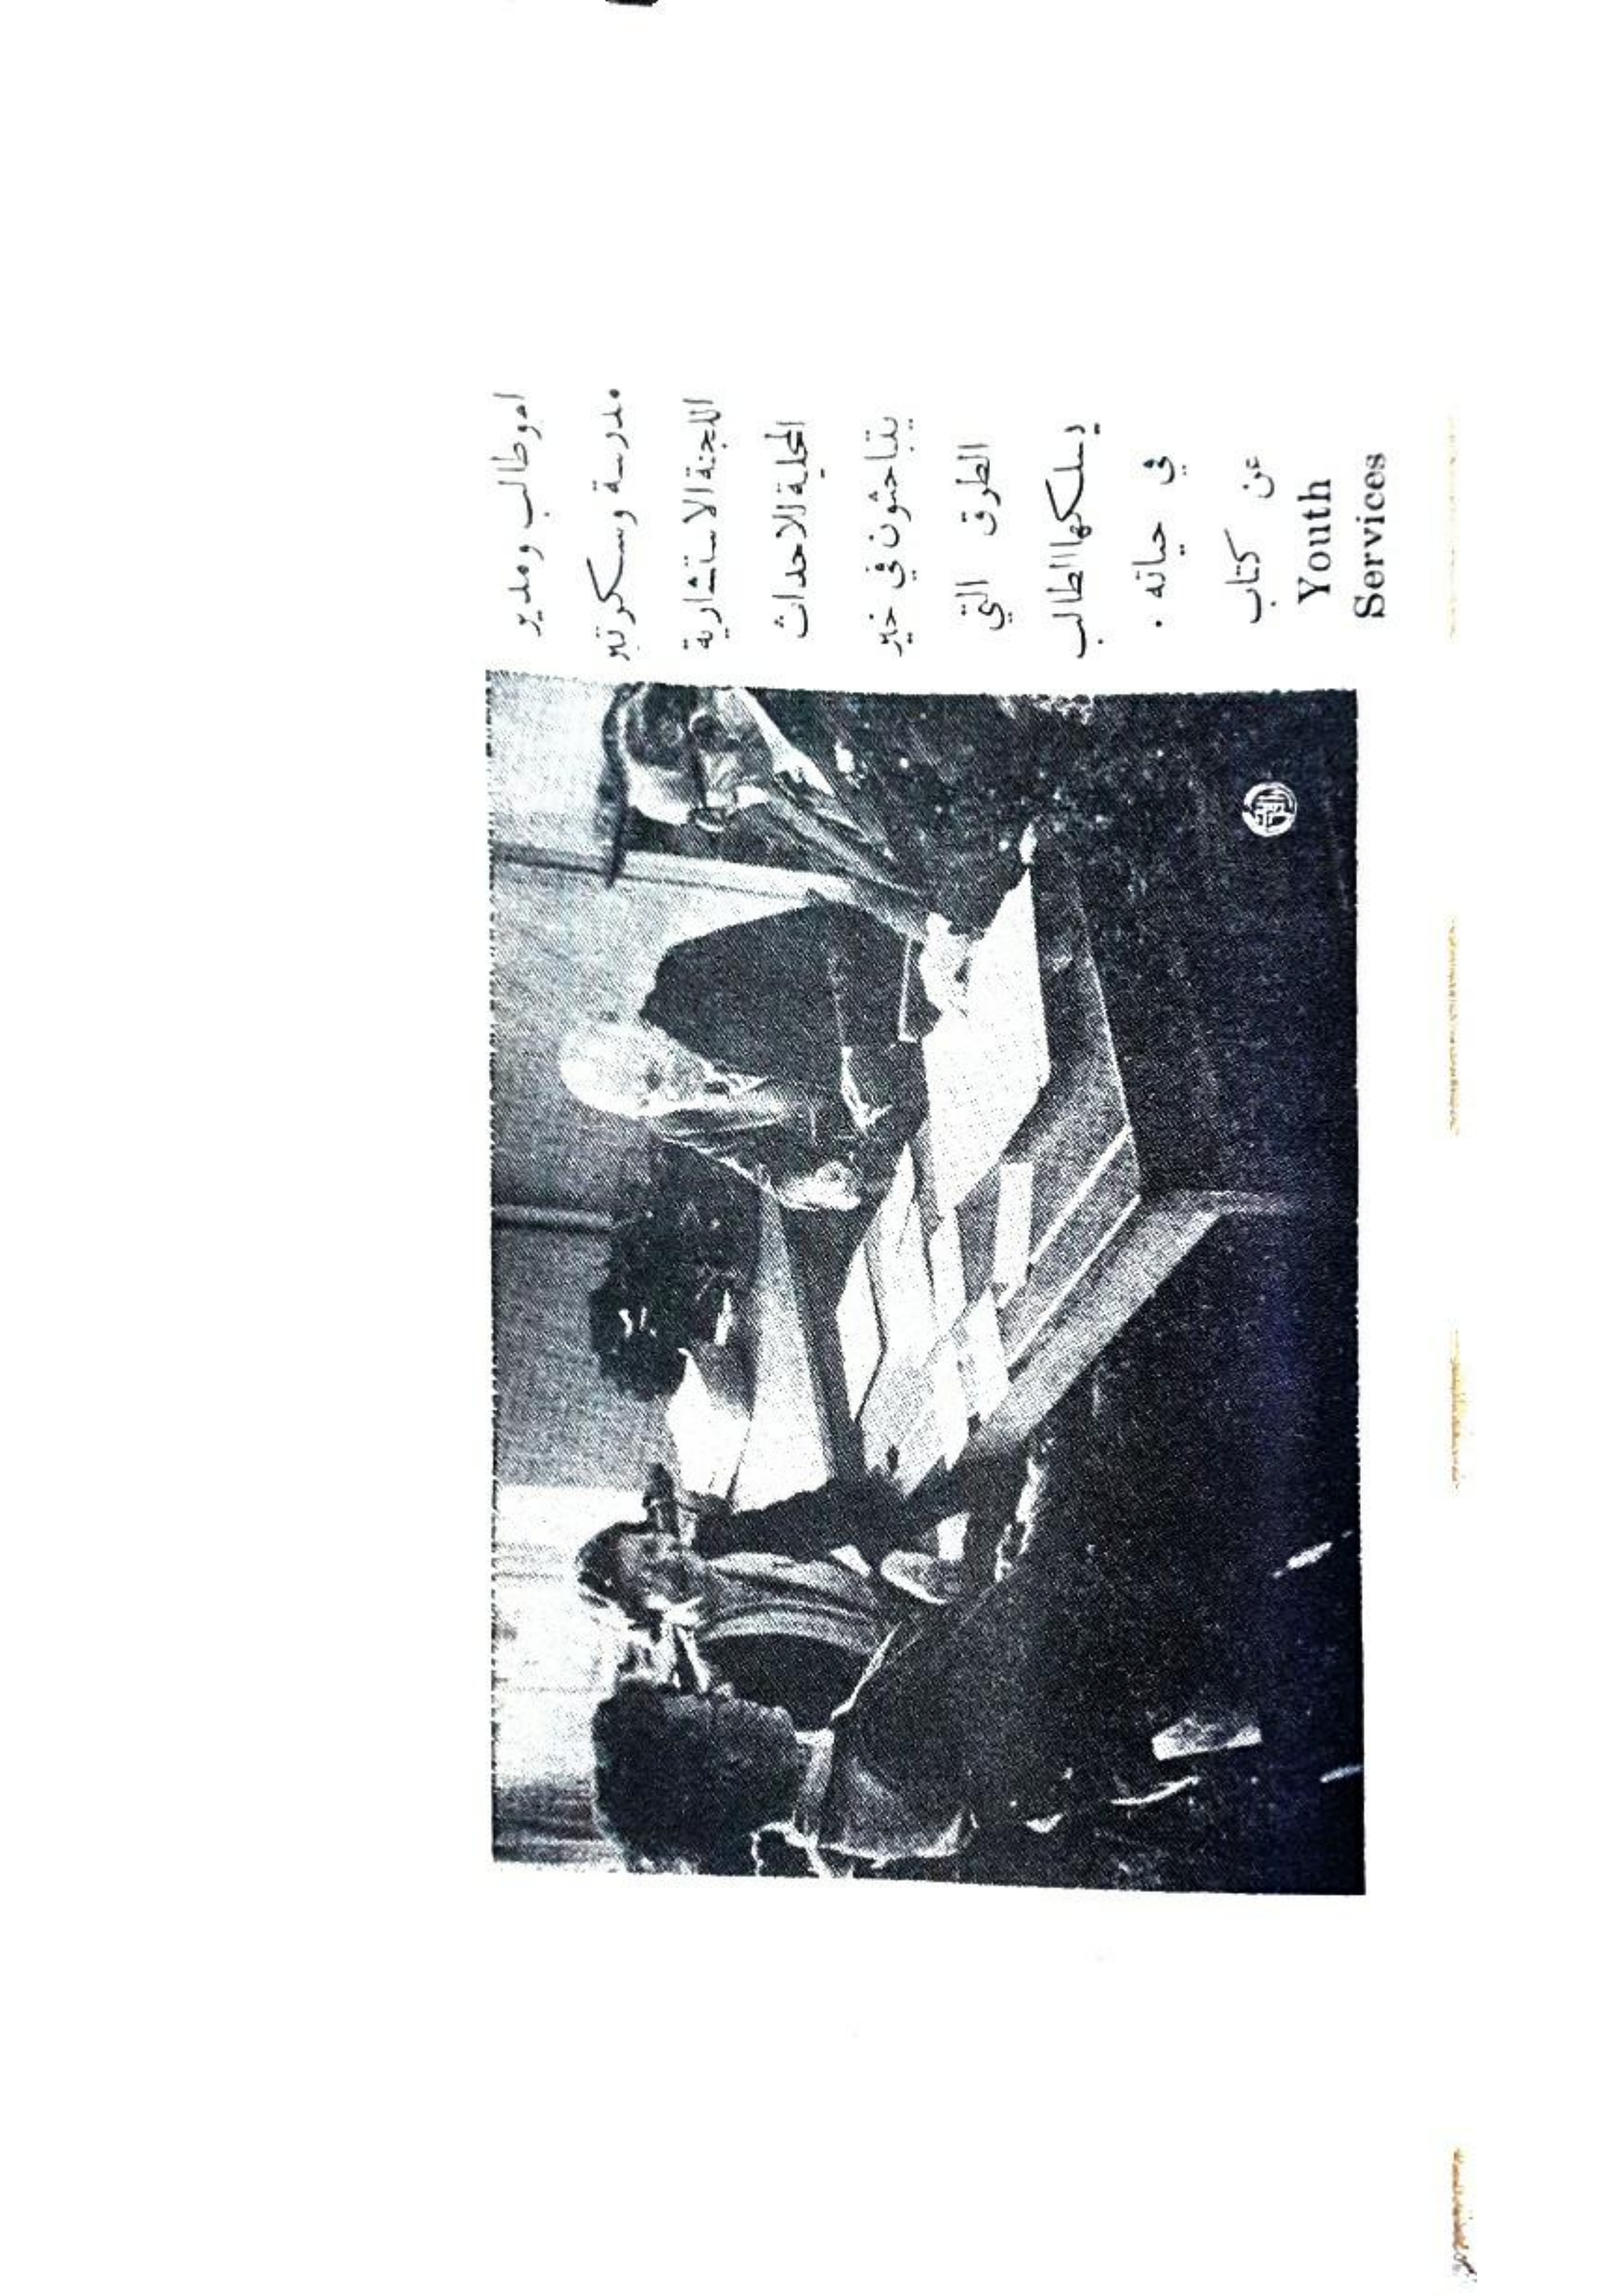 ابو طالب ومدير
مدرسة وسكرتير
اللجنة الاستشارية
المحلية للاحداث
يتباحثون في خير
الطرق التي
يسلكها الطالب
في حياته .
عن كتاب
Youth
Services